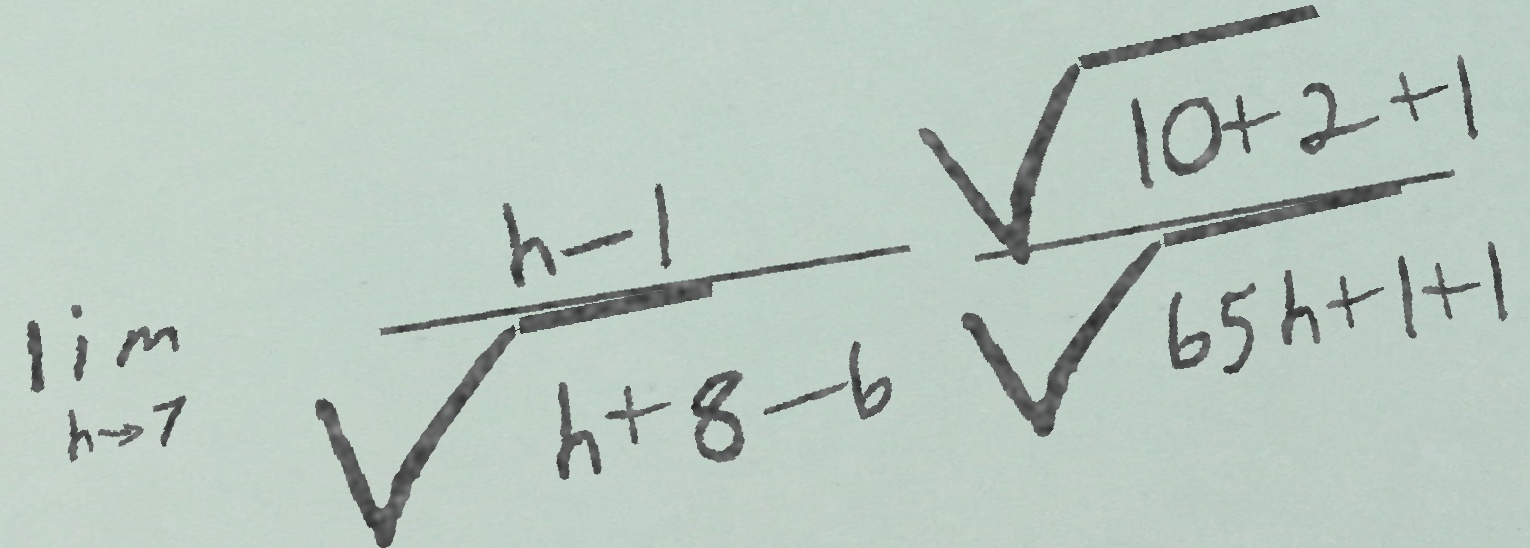 \lim_{h \to 7} \frac{h-1}{\sqrt{h+8}-6} \frac{\sqrt{10+2}+1}{\sqrt{65h+1}+1}